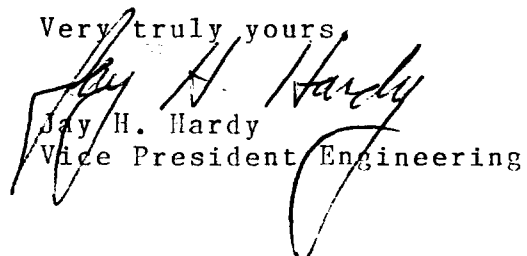 Very truly yours,
Jay H. Hardy
Jay H. Hardy
Vice President Engineering